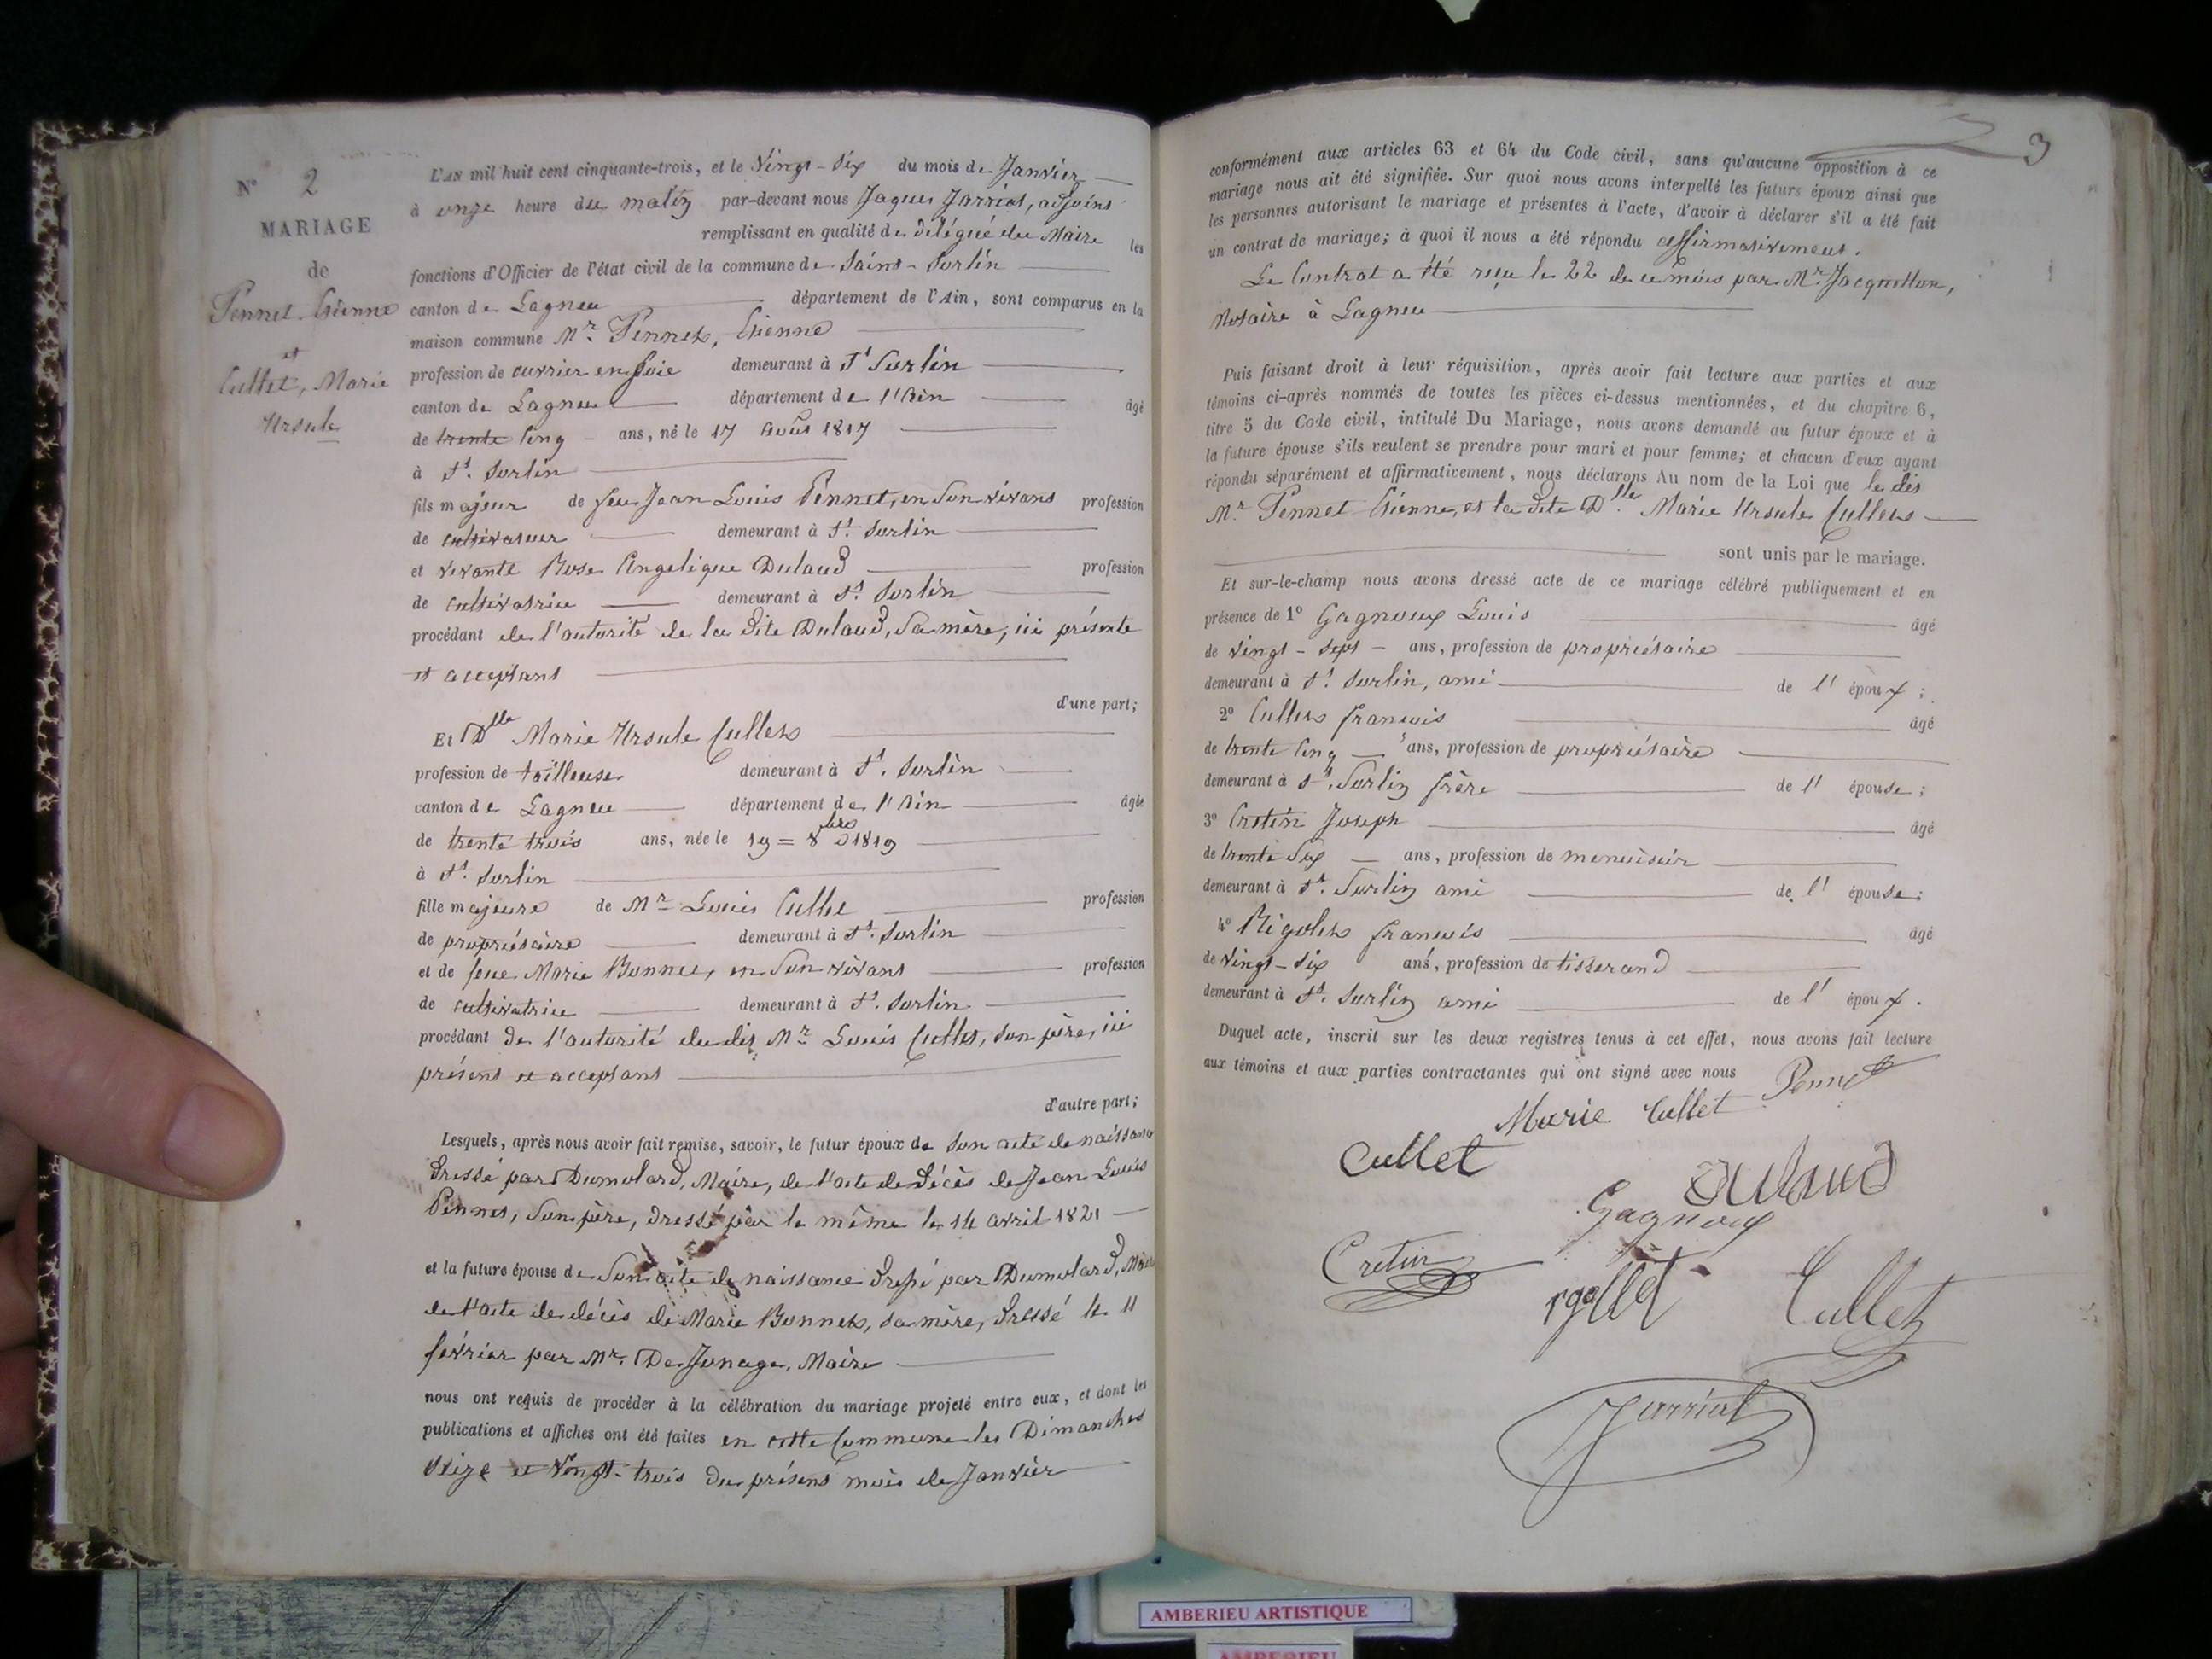 N° 2
MARIAGE
de
Pennet Etienne
et
Cullet, Marie
Ursule
L'AN mil huit cent cinquante-trois, et le Vingt-Six du mois de Janvier
à onze heure du matin par-devant nous Jaques Jarriat, adjoint
remplissant en qualité de délégué du Maire les
fonctions d'Officier de l'état civil de la commune de Saint-Sorlin
canton de Lagnieu département de l'Ain, sont comparus en la
maison commune Mr Pennet, Etienne
profession de ouvrier en soie demeurant à St Sorlin
canton de Lagnieu département de l'Ain âgé
de trente cinq ans, né le 17 Août 1817
à St. Sorlin
fils majeur de feu Jean Louis Pennet, en son vivant profession
de cultivateur demeurant à St Sorlin
et vivante Rose Angelique Dulaud profession
de cultivatrice demeurant à St. Sorlin
procédant de l'autorité de la dite Dulaud, sa mère, ici présente
et acceptant
d'une part;
Et Dlle Marie Ursule Cullet
profession de tailleuse demeurant à St. Sorlin
canton de Lagnieu département de l'Ain âgée
de trente trois ans, née le 19 = 8bre 1819
à St. Sorlin
fille majeure de Mr Louis Cullet profession
de propriétaire demeurant à St. Sorlin
et de feue Marie Bonnet, en son vivant profession
de cultivatrice demeurant à St. Sorlin
procédant de l'autorité du dit Mr Louis Cullet, son père, ici
présent et acceptant
d'autre part;
Lesquels, après nous avoir fait remise, savoir, le futur époux de son acte de naissance
dressé par Dumolard, Maire, de l'acte de décès de Jean Louis
Pennet, son père, dressé par le même le 14 avril 1821
et la future épouse de son acte de naissance dressé par Dumolard, Maire
de l'acte de décès de Marie Bonnet, sa mère, dressé le 11
février par Mr. De Jonage, Maire
nous ont requis de procéder à la célébration du mariage projeté entre eux, et dont les
publications et affiches ont été faites en cette Commune les Dimanches
seize et vingt-trois du présent mois de Janvier
3
conformément aux articles 63 et 64 du Code civil, sans qu'aucune opposition à ce
mariage nous ait été signifiée. Sur quoi nous avons interpellé les futurs époux ainsi que
les personnes autorisant le mariage et présentes à l'acte, d'avoir à déclarer s'il a été fait
un contrat de mariage; à quoi il nous a été répondu affirmativement.
Le Contrat a été reçu le 22 de ce mois par Mr Jacquotton,
Notaire à Lagnieu
Puis faisant droit à leur réquisition, après avoir fait lecture aux parties et aux
témoins ci-après nommés de toutes les pièces ci-dessus mentionnées, et du chapitre 6,
titre 5 du Code civil, intitulé Du Mariage, nous avons demandé au futur époux et à
la future épouse s'ils veulent se prendre pour mari et pour femme; et chacun d'eux ayant
répondu séparément et affirmativement, nous déclarons Au nom de la Loi que le dit
Mr Pennet Etienne, et la dite Dlle Marie Ursule Cullet
sont unis par le mariage.
Et sur-le-champ nous avons dressé acte de ce mariage célébré publiquement et en
présence de 1° Gagnoux Louis âgé
de vingt-sept ans, profession de propriétaire
demeurant à St. Sorlin, ami de l'époux;
2° Cullet francois âgé
de trente cinq ans, profession de propriétaire
demeurant à St. Sorlin frère de l'épouse;
3° Cretin Joseph âgé
de trente six ans, profession de menuisier
demeurant à St. Sorlin ami de l'épouse;
4° Rigolet francois âgé
de vingt-six ans, profession de tisserand
demeurant à St. Sorlin ami de l'époux.
Duquel acte, inscrit sur les deux registres tenus à cet effet, nous avons fait lecture
aux témoins et aux parties contractantes qui ont signé avec nous
Pennet
Marie Cullet
Cullet
Dulaud
Gagnoux
Cretin
Cullet
Jarriat
AMBERIEU ARTISTIQUE
AMBERIEU